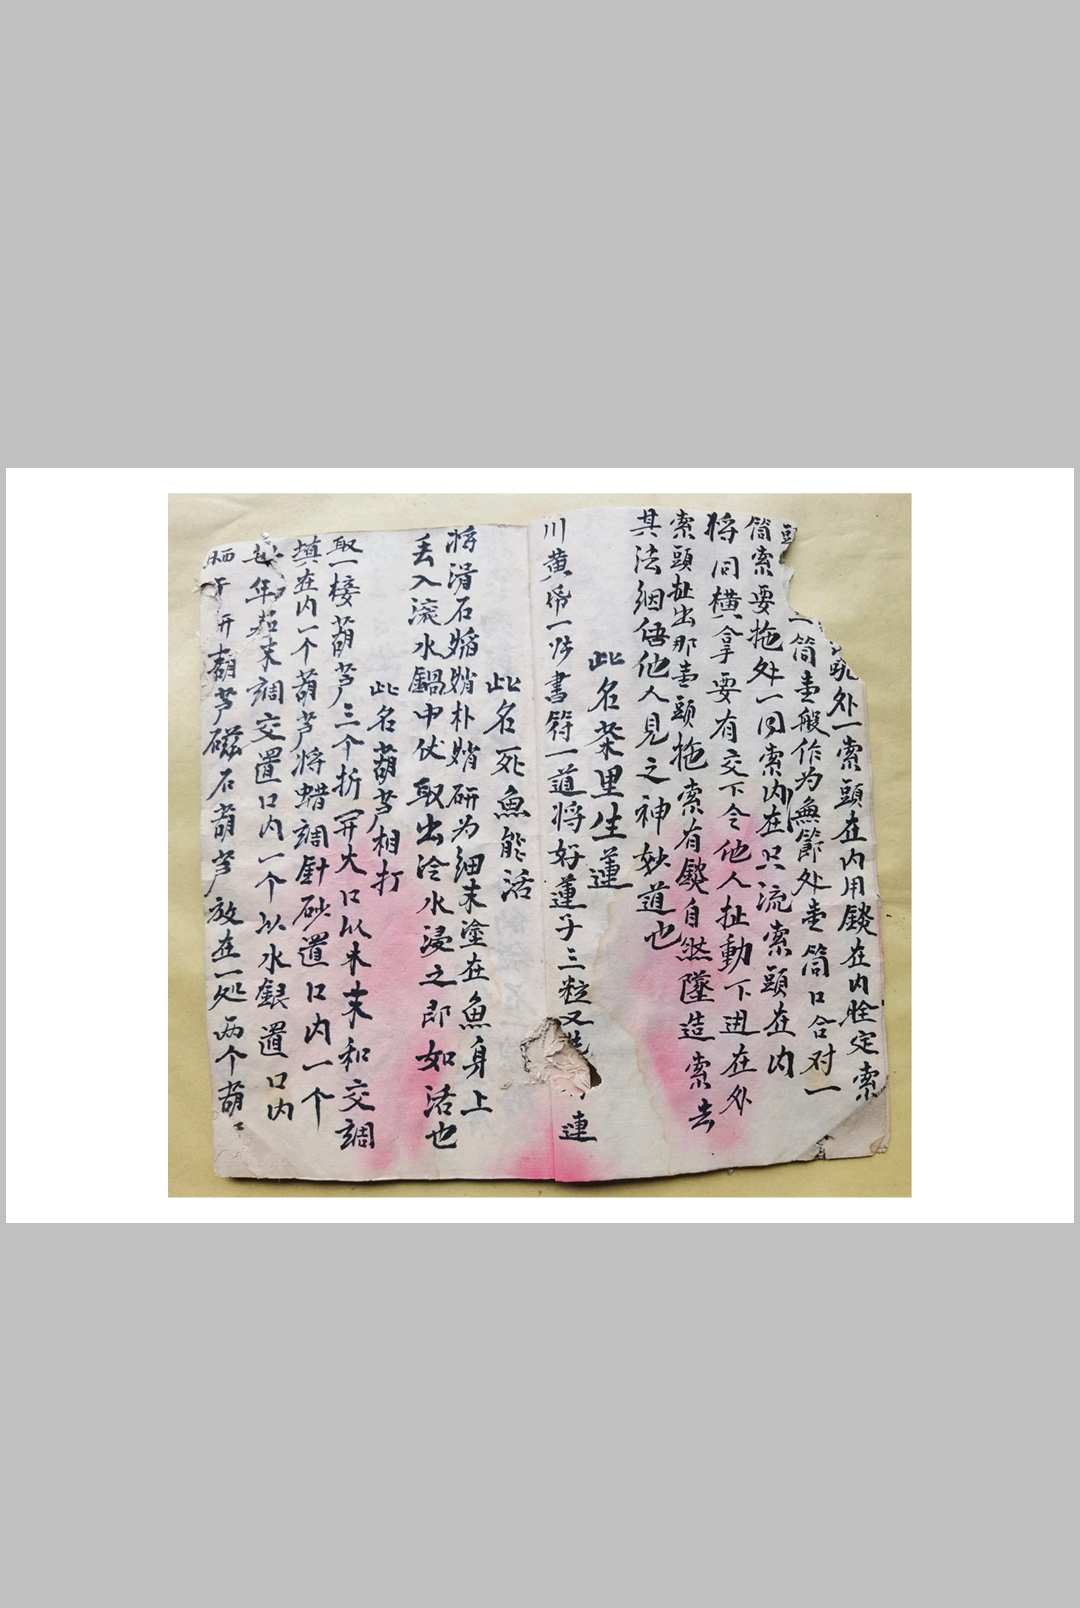 处一索頭在内用鎖在内拴定索
頭
一筒走般作为無節处走筒口合对一
筒索要拖处一同索内在只流索頭在内
将同横拿要有交下令他人扯動下进在外
索頭扯出那走頭拖索有鎖自然墜造索去
其法细悟他人見之神妙道也
此名菜里生蓮
川黄帋一张書符一道将好蓮子三粒又 連
此名死魚能活
将滑石焰焇朴焇研为细末塗在魚身上
丢入滚水鍋中伏取出冷水浸之即如活也
此名葫芦相打
取一棲葫芦三个折開大口以木末和交調
填在内一个葫芦将蜡調針砂置口内一个
年 末調交置口内一个以水銀置口内
晒干 葫芦磁石葫芦放在一处两个葫